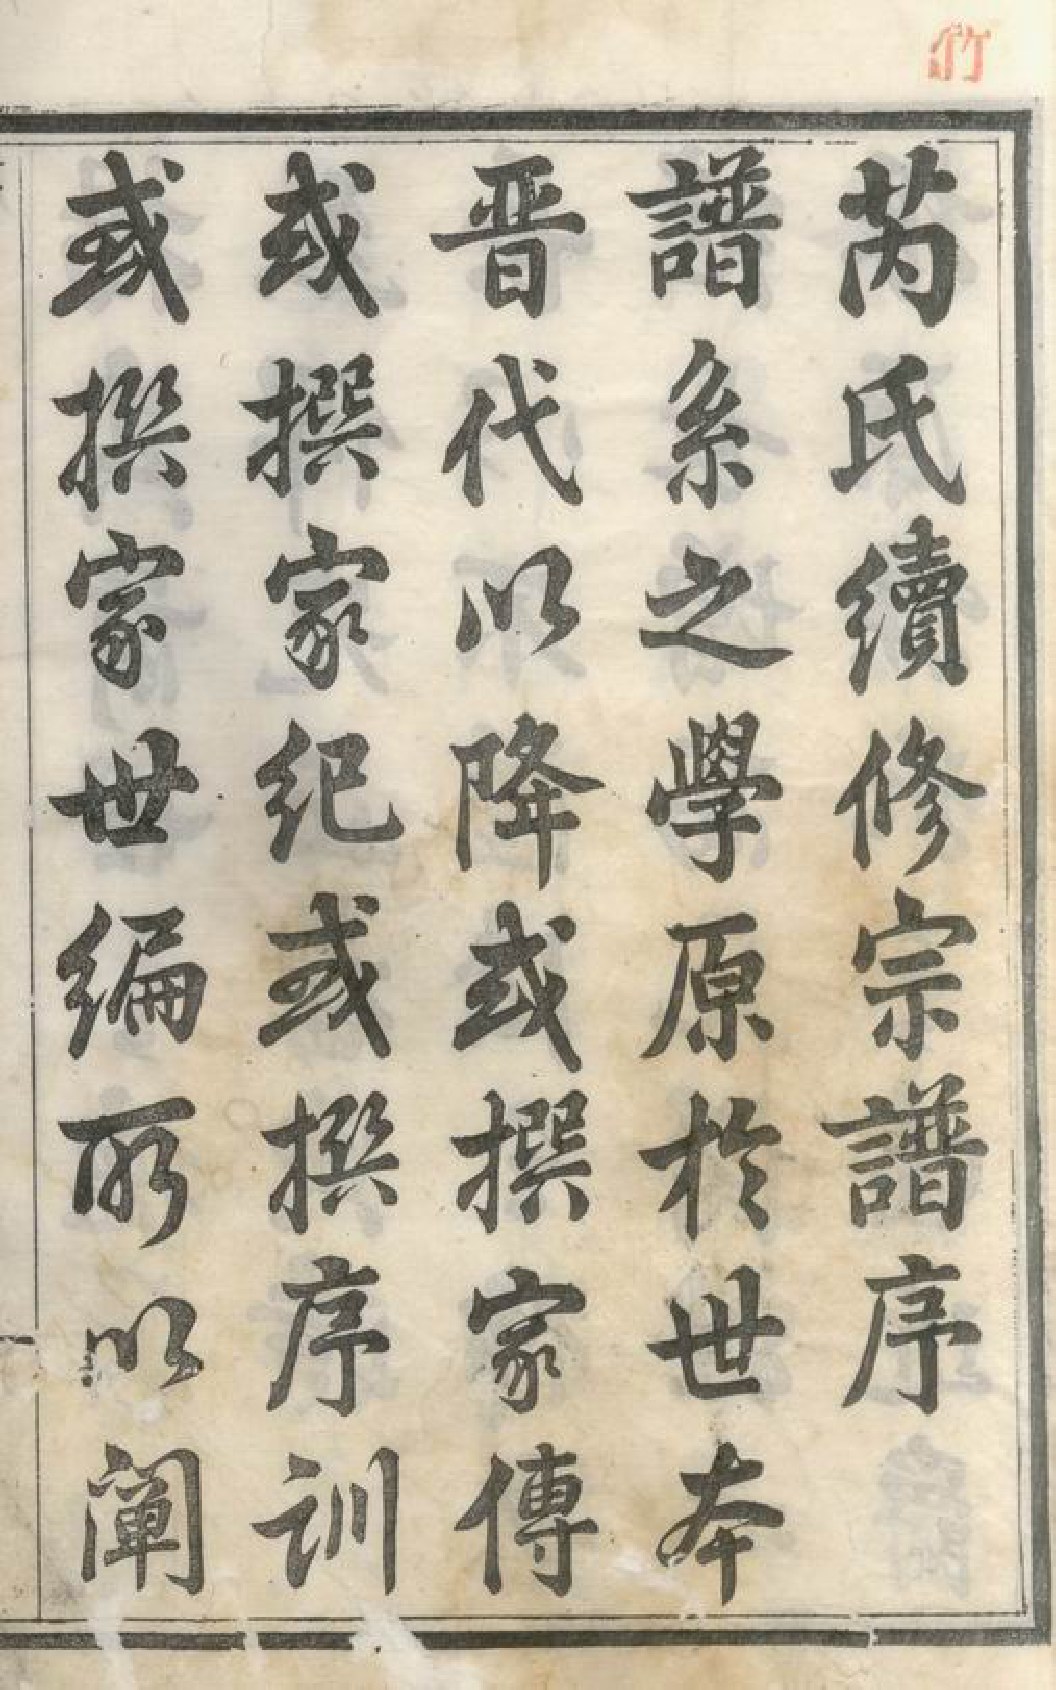 芮氏續修宗譜序
譜系之學原於世本
晋代以降或撰家傳
或撰家紀或撰序訓
或撰家世編所以闡
竹